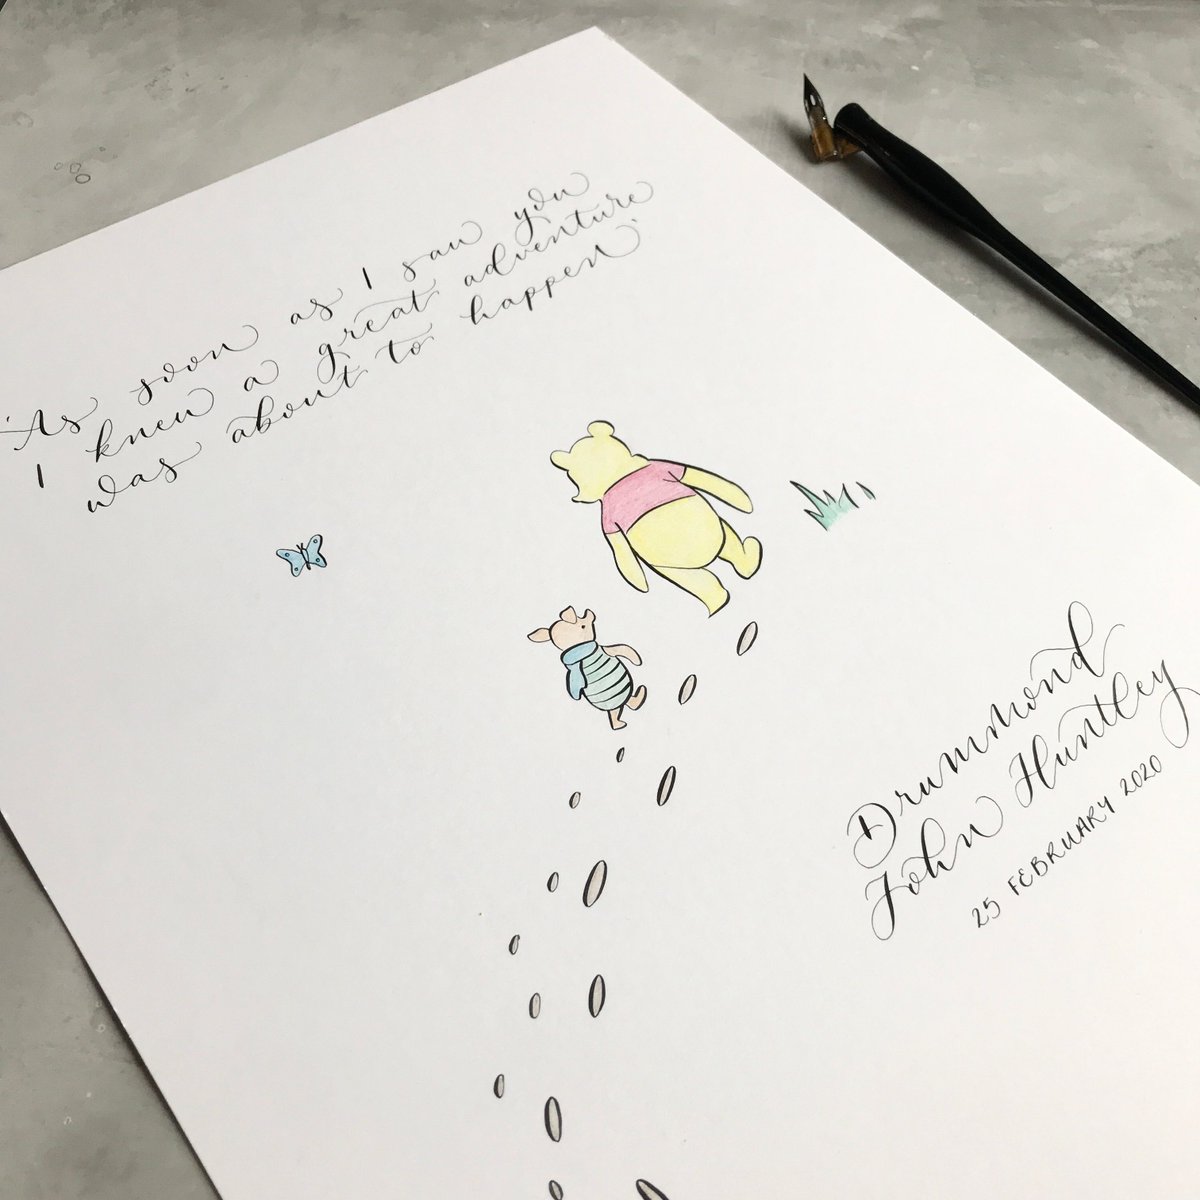 'As soon as I saw you
I knew a great adventure
was about to happen'
Drummond
John Huntley
25 FEBRUARY 2020